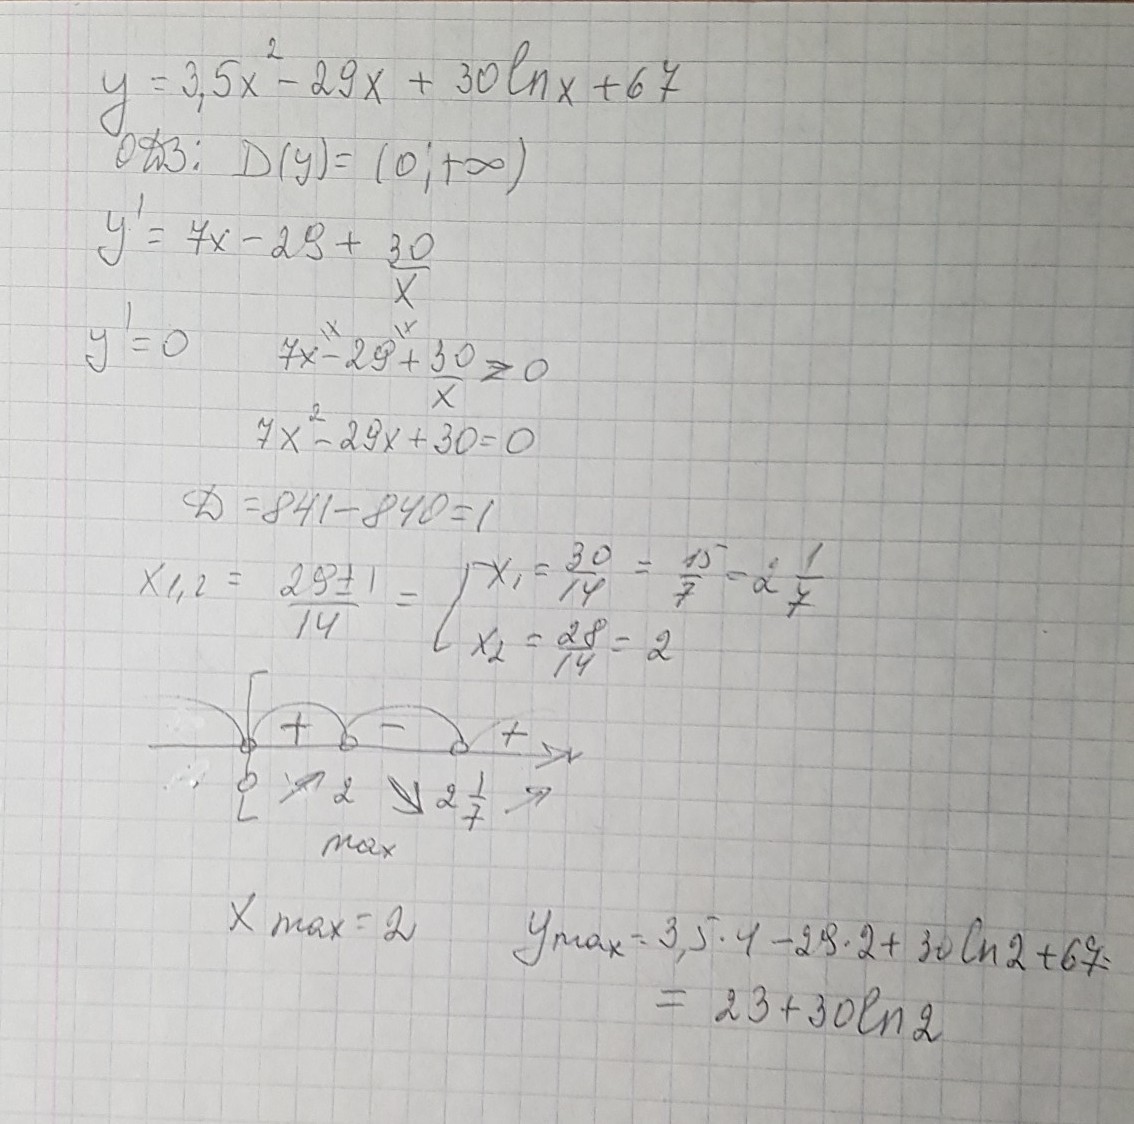 y = 3,5x² - 29x + 30lnx + 67
ОДЗ: D(y) = (0; +∞)
y' = 7x - 29 + 30/x
y' = 0 7x\x - 29\x + 30/x = 0
7x² - 29x + 30 = 0
D = 841 - 840 = 1
x1,2 = (29±1)/14 = [ x1 = 30/14 = 15/7 = 2 1/7
x2 = 28/14 = 2
+ - +
0 ↗ 2 ↘ 2 1/7 ↗
max
x max = 2 ymax = 3,5·4 - 29·2 + 30ln2 + 67=
= 23 + 30ln2